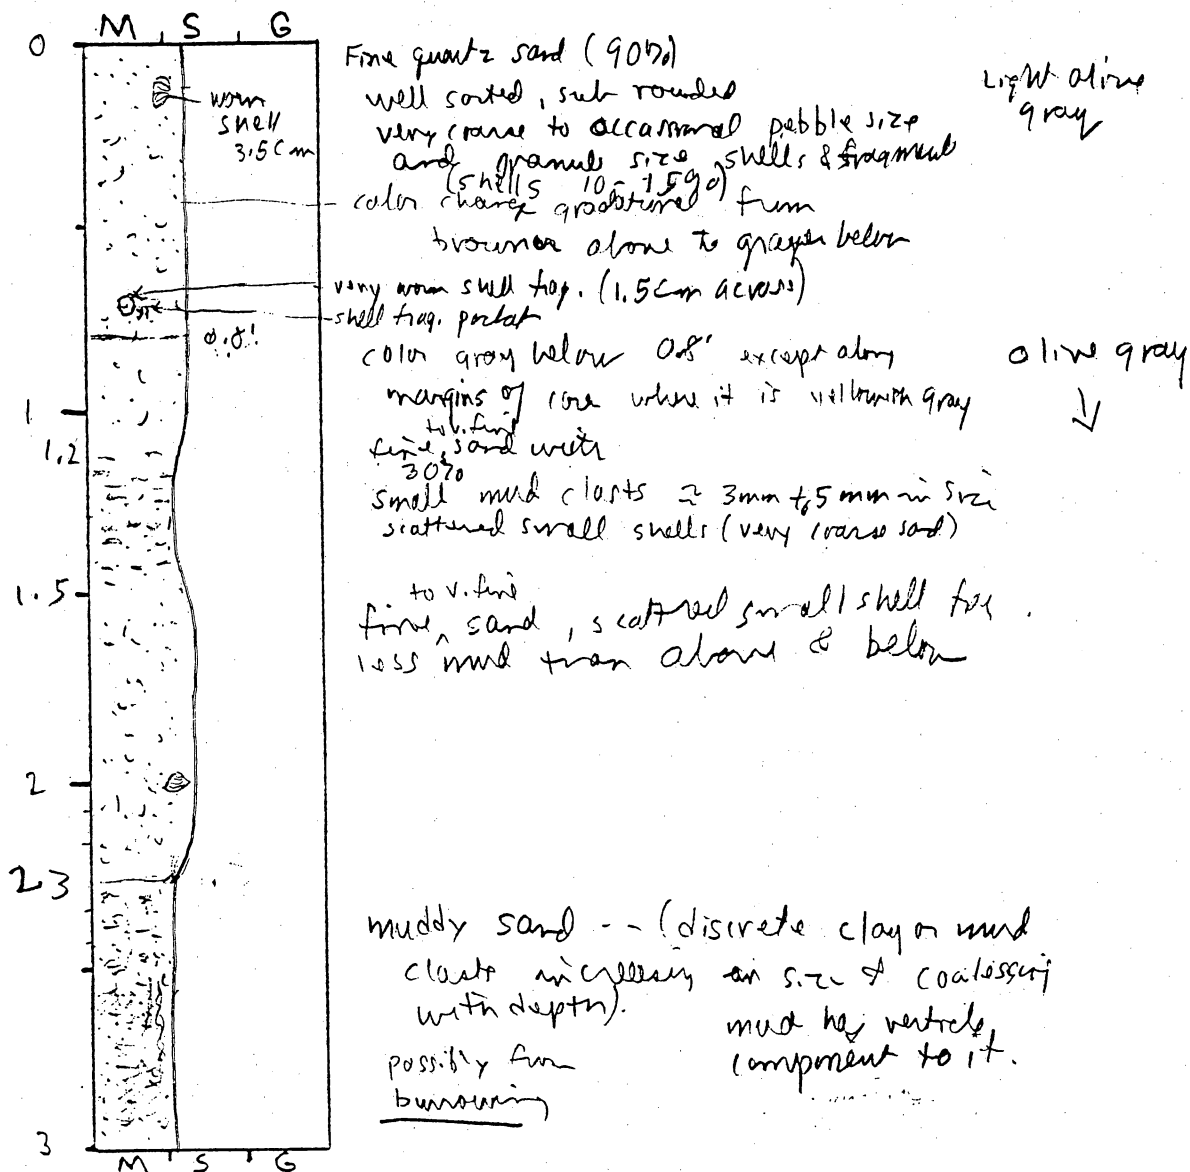 M S G
0
Fine quartz sand (90%)
well sorted, sub rounded
very coarse to occassional pebble size
and granule size shells & fragment
(shells 10-15%)
Light olive
gray
worn
shell
3.5 cm
color change gradational from
browner above to grayer below
very worn shell frag. (1.5 cm across)
shell frag. pocket
0.8'
color gray below 0.8' except along
margins of core where it is yellowish gray
olive gray
1
1.2
to v. fine
fine, sand with
30%
small mud clasts ≈ 3mm to 5 mm in size
scattered small shells (very coarse sand)
1.5
to v. fine
fine ^ sand, scattered small shell
less mud than above & below
2
2 3
muddy sand -- (discrete clay or mud
clasts increasing in size & coalessing
with depth).
mud has verticle
component to it.
possibly from
burrowing
3
M S G